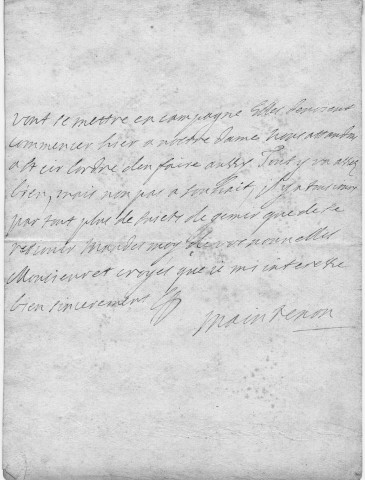 vont se mettre en campagne Elles devoient
commencer hier a nostre dame Nous attendons
a St cir l'ordre d'en faire autant Tout y va assez
bien, mais non pas a souhait, il y a tousjours
par tout plus de sujets de gemir que de se
resjouir Mandes moy de vos nouvelles
Monsieur et croyes que ie mi interesse
bien sincerement
Maintenon